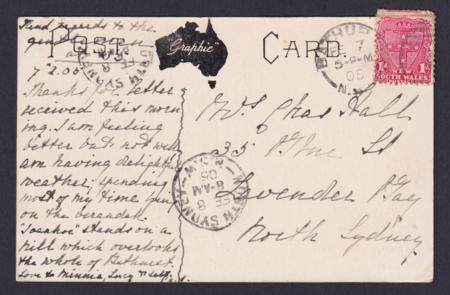 Kind regards to the
POST
"Graphic"
CARD.
7.2.05
Thanks for letter
received this morn
ing. I am feeling
better but not well
am having delightful
weather, spending
most of my time
on the verandah.
"Ivanhoe" stands on a
hill which overlooks
the whole of Bathurst.
Love to Minnie, Lucy & self.
Mrs Chas Hall
35 Blue St
Lavender Bay
North Sydney
BATHURST
7
05
NORTH SYDNEY
8-AM
FE 8
05
N.S.W
NEW
SOUTH WALES